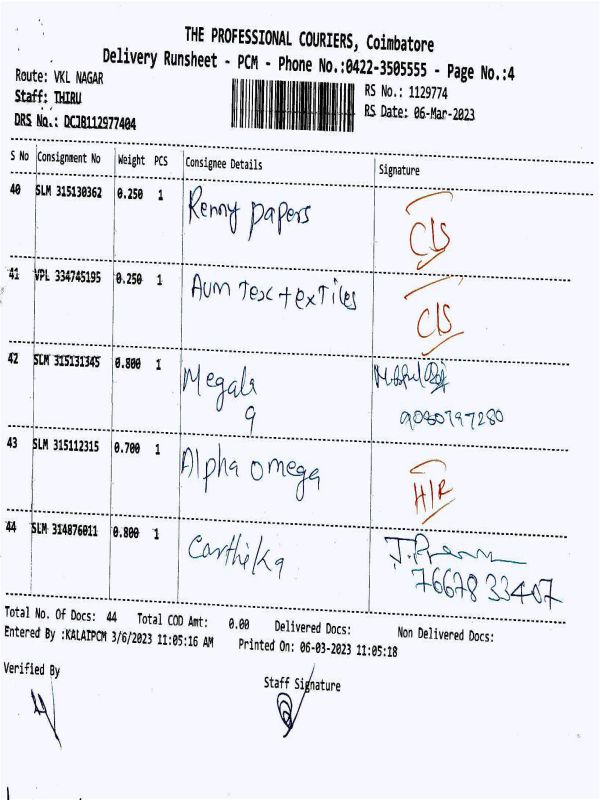 THE PROFESSIONAL COURIERS, Coimbatore
Delivery Runsheet - PCM - Phone No.:0422-3505555 - Page No.:4
Route: VKL NAGAR
RS No.: 1129774
Staff: THIRU
RS Date: 06-Mar-2023
DRS No.: DCJB112977404
S No Consignment No Weight PCS Consignee Details Signature
40 SLM 315130362 0.250 1 Renny papers C/S
41 VPL 334745195 0.250 1 Aum Tex textiles C/S
42 SLM 315131345 0.800 1 Megala
9 9080797280
43 SLM 315112315 0.700 1 Alpha omega H/R
44 SLM 314876011 0.800 1 Carthika J. Prem
7667833407
Total No. Of Docs: 44 Total COD Amt: 0.00 Delivered Docs: Non Delivered Docs:
Entered By :KALAIPCM 3/6/2023 11:05:16 AM Printed On: 06-03-2023 11:05:18
Verified By
Staff Signature